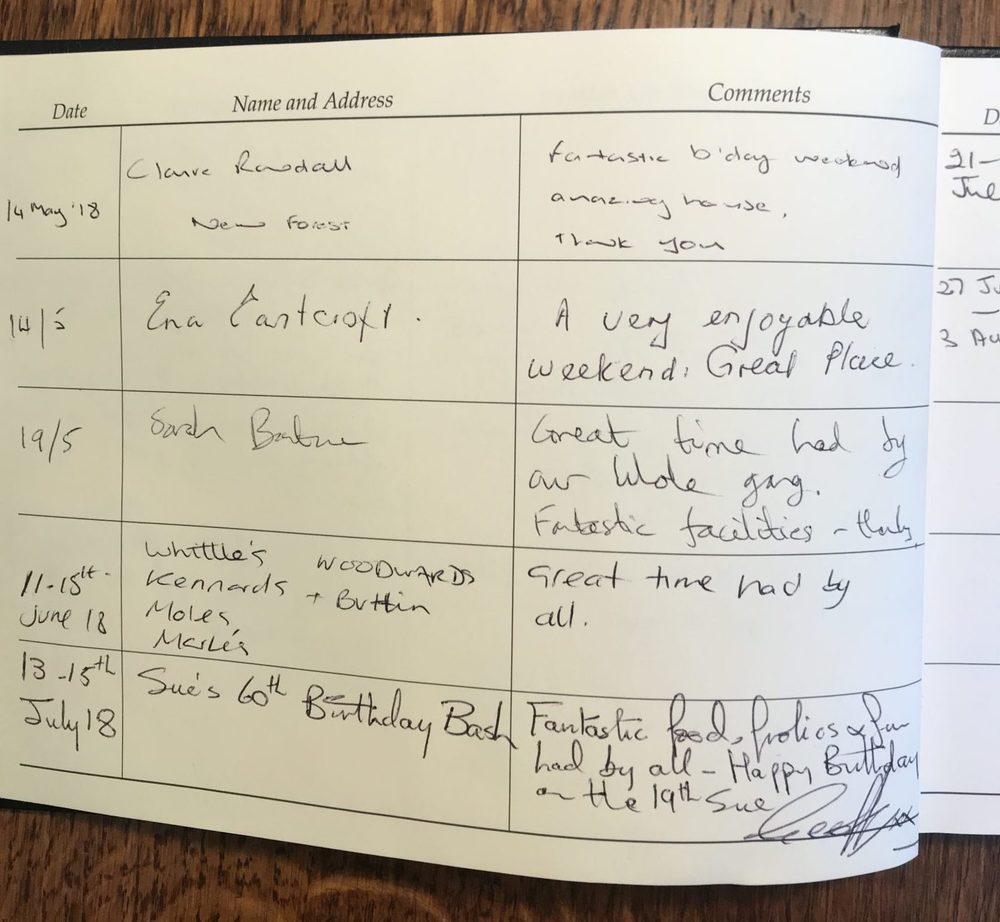 Date Name and Address Comments
14 May '18
Claire Randall
New Forest
Fantastic b'day weekend
amazing house,
Thank you
14/5
Ena
A very enjoyable
weekend. Great Place.
19/5
Sarah
Great time had by
our whole gang.
Fantastic facilities - thanks
11-15th
June 18
Whittle's WOODWARDS
Kennards + Buttin
Moles
Great time had by
all.
13-15th
July 18
Sue's 60th Birthday Bash
Fantastic food, frolics & fun
had by all - Happy Birthday
on the 19th Sue
Geoff xx
D
21-
27
3 Au